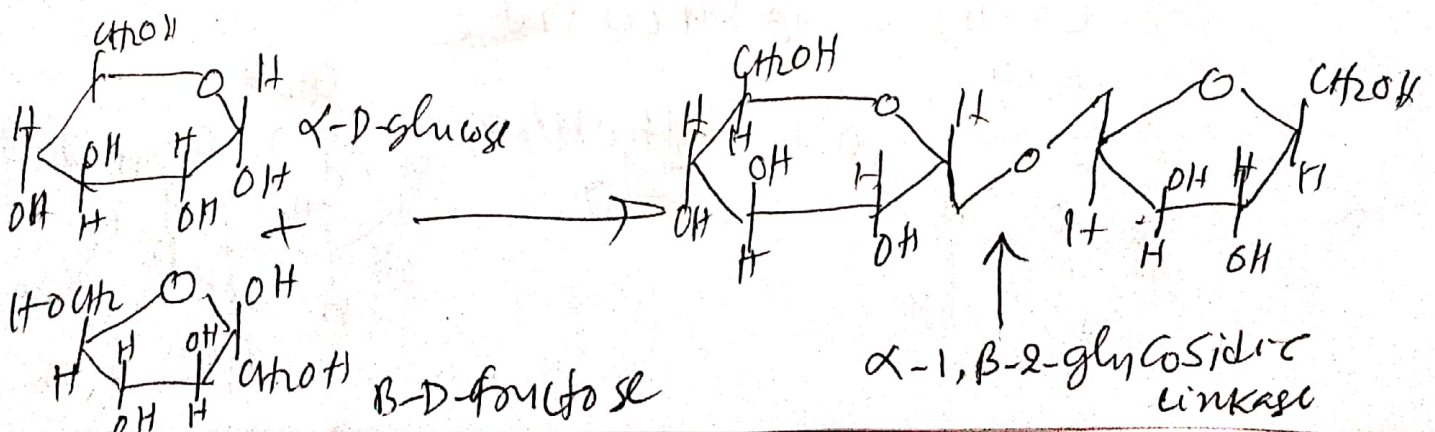 CH2OH
O H
H OH H α-D-glucose
OH H OH OH
+
HOCH2 O OH
H H OH CH2OH
OH H
B-D-fructose
CH2OH
H O H
H OH H
OH H OH
O
O CH2OH
H OH H H
H OH
α-1, β-2-glycosidic
linkage